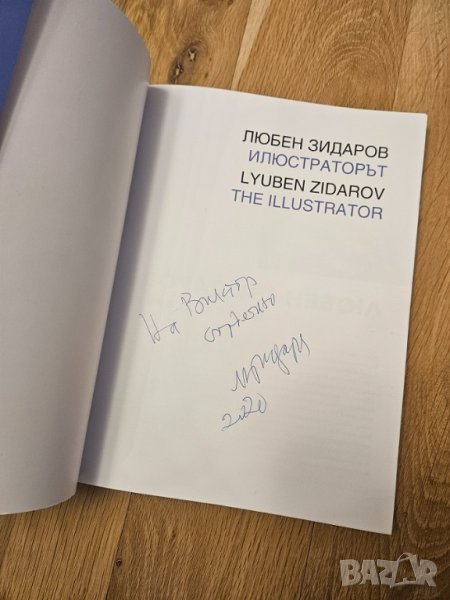 ЛЮБЕН ЗИДАРОВ
ИЛЮСТРАТОРЪТ
LYUBEN ZIDAROV
THE ILLUSTRATOR
На Виктор
сърдечно
2020
BAZAR